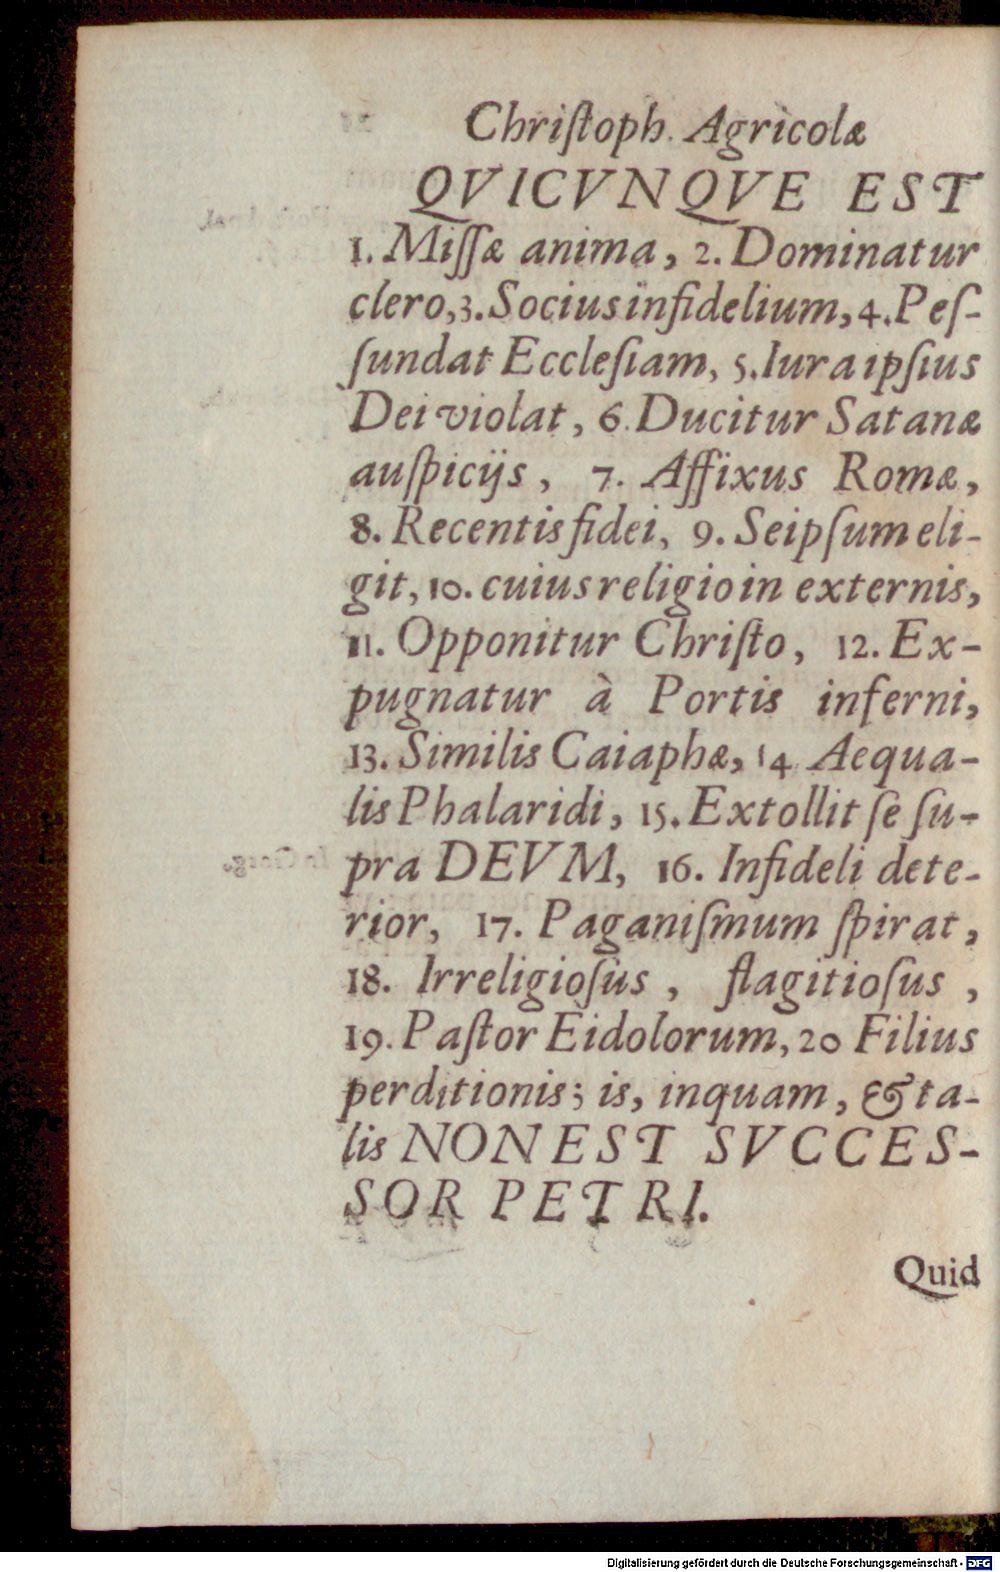 Chriſtoph. Agricolæ
QVICVNQVE EST
1. Miſſæ anima, 2. Dominatur
clero, 3. Socius infidelium, 4. Peſ-
ſundat Eccleſiam, 5. Iura ipſius
Dei violat, 6. Ducitur Satanæ
auſpicijs, 7. Affixus Romæ,
8. Recentis fidei, 9. Seipſum eli-
git, 10. cuius religio in externis,
11. Opponitur Chriſto, 12. Ex-
pugnatur à Portis inferni,
13. Similis Caiaphæ, 14 Aequa-
lis Phalaridi, 15. Extollit ſe ſu-
pra DEVM, 16. Infideli dete-
rior, 17. Paganiſmum ſpirat,
18. Irreligioſus, flagitioſus,
19. Paſtor Eidolorum, 20 Filius
perditionis; is, inquam, & ta-
lis NON EST SVCCES-
SOR PETRI.
Quid
Digitalisierung gefördert durch die Deutsche Forschungsgemeinschaft - DFG